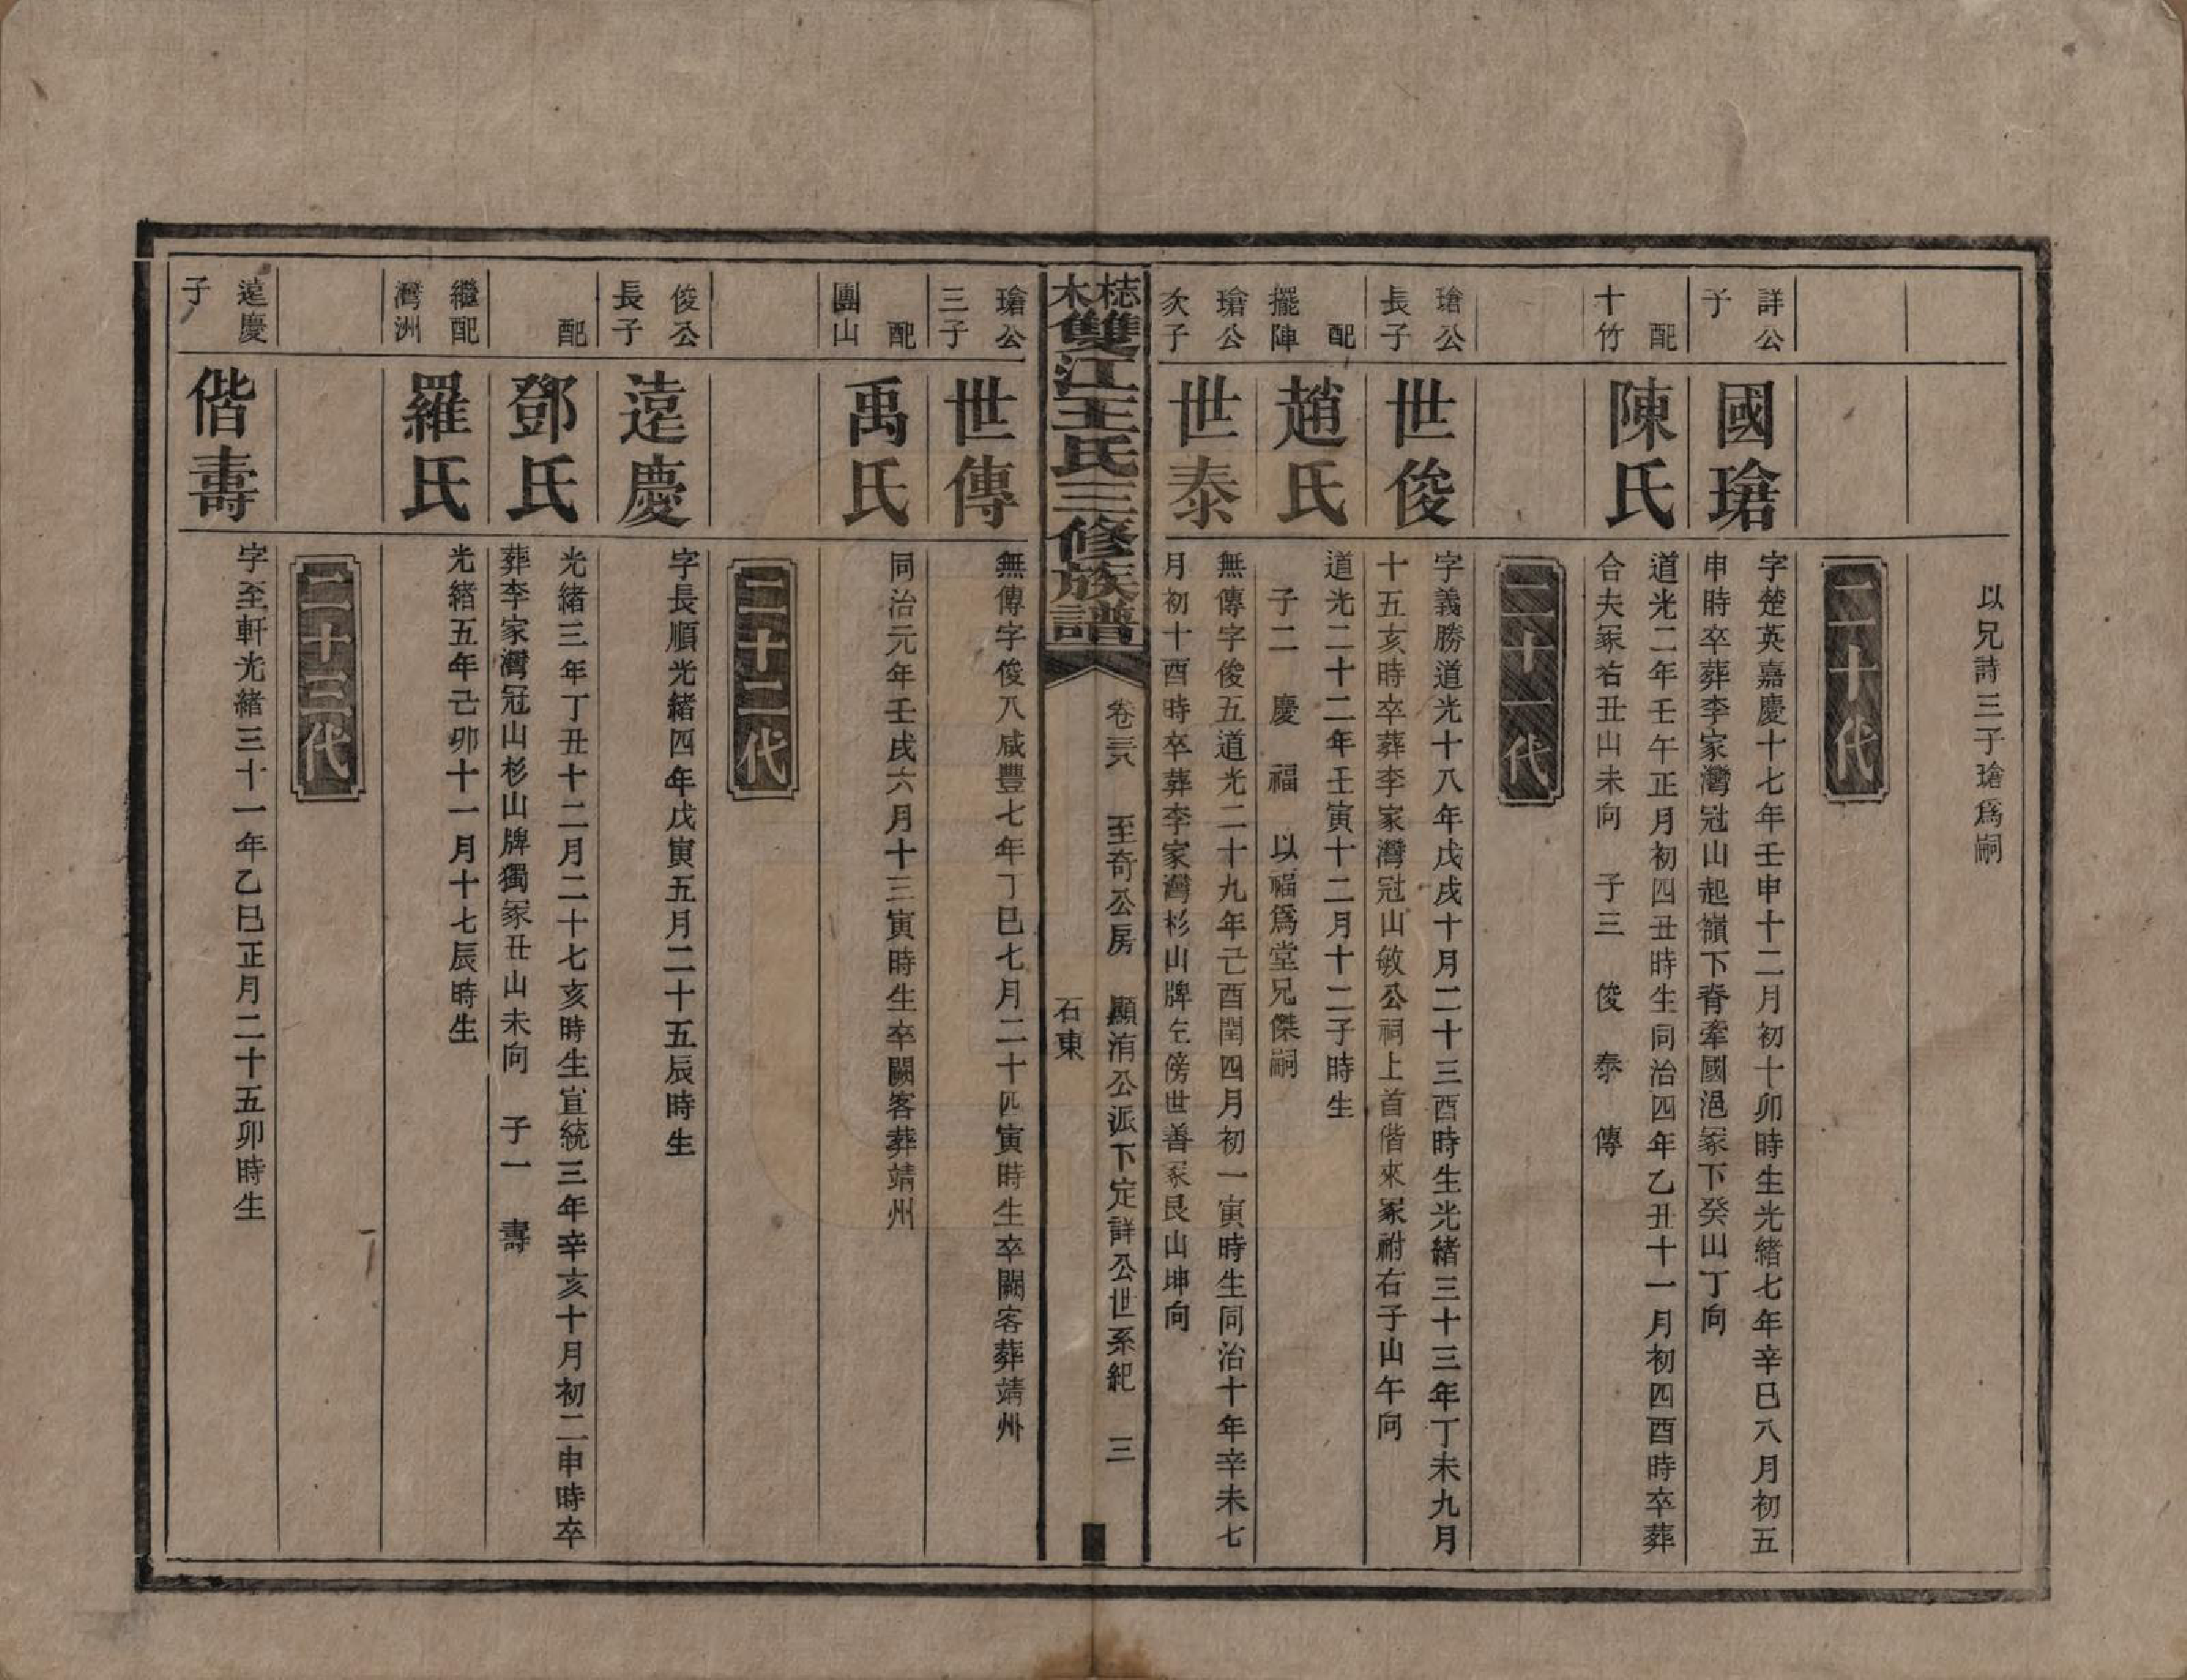 以兄詩三子瑲爲嗣
二十代
詳公
子
國瑲
字楚英嘉慶十七年壬申十二月初十卯時生光緒七年辛巳八月初五
申時卒葬李家灣冠山起嶺下脊牽國浥冢下癸山丁向
配
十竹
陳氏
道光二年壬午正月初四丑時生同治四年乙丑十一月初四酉時卒葬
合夫冢右丑山未向 子三 俊 泰 傳
二十一代
瑲公
長子
世俊
字義勝道光十八年戊戌十月二十三酉時生光緒三十三年丁未九月
十五亥時卒葬李家灣冠山敏公祠上首偕來冢祔右子山午向
配
擺陣
趙氏
道光二十二年壬寅十二月十二子時生
子二 慶 福 以福爲堂兄傑嗣
瑲公
次子
世泰
無傳字俊五道光二十九年己酉閏四月初一寅時生同治十年辛未七
月初十酉時卒葬李家灣杉山牌左傍世善冢艮山坤向
梽木
雙江王氏三修族譜
卷三八 至奇公房 顯洧公派下定詳公世系紀 三
石東
瑲公
三子
世傳
無傳字俊八咸豐七年丁巳七月二十四寅時生卒闕客葬靖州
配
團山
禹氏
同治元年壬戌六月十三寅時生卒闕客葬靖州
二十二代
俊公
長子
遠慶
字長順光緒四年戊寅五月二十五辰時生
配
鄧氏
光緒三年丁丑十二月二十七亥時生宣統三年辛亥十月初二申時卒
葬李家灣冠山杉山牌獨冢丑山未向 子一 壽
繼配
灣洲
羅氏
光緒五年己卯十一月十七辰時生
二十三代
遠慶
子
偕壽
字至軒光緒三十一年乙巳正月二十五卯時生